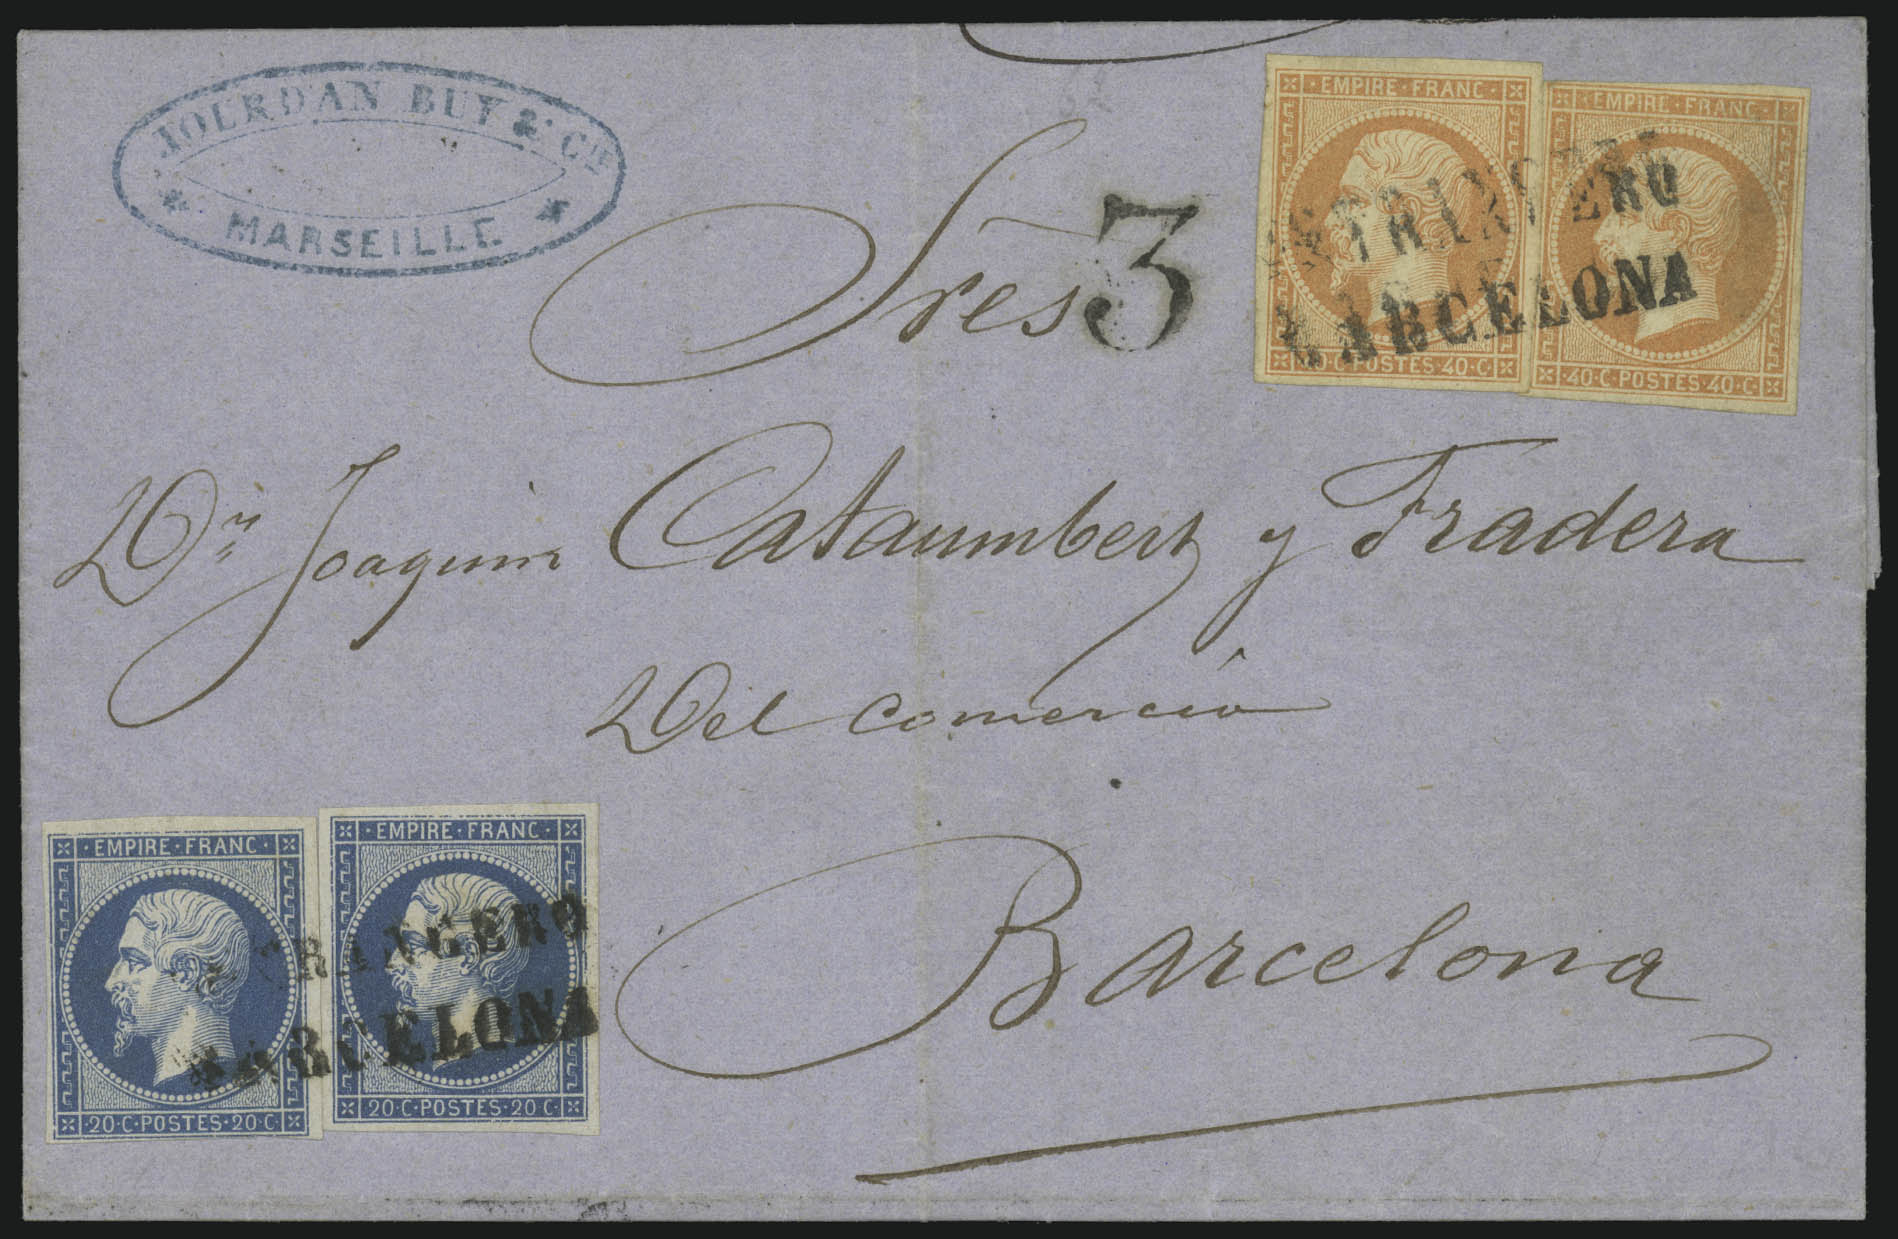 JOURDAN BUY & Cie
* MARSEILLE *
EMPIRE · FRANC ·
40 · C · POSTES · 40 · C ·
EMPIRE · FRANC ·
40 · C · POSTES · 40 · C ·
ESTRANGERO
BARCELONA
Sres
3
Dn Joaquim Cataumbert y Fradera
Del comercio
Barcelona
· EMPIRE · FRANC ·
· 20 · C · POSTES · 20 · C ·
· EMPIRE · FRANC ·
20 · C · POSTES · 20 · C ·
ESTRANGERO
BARCELONA